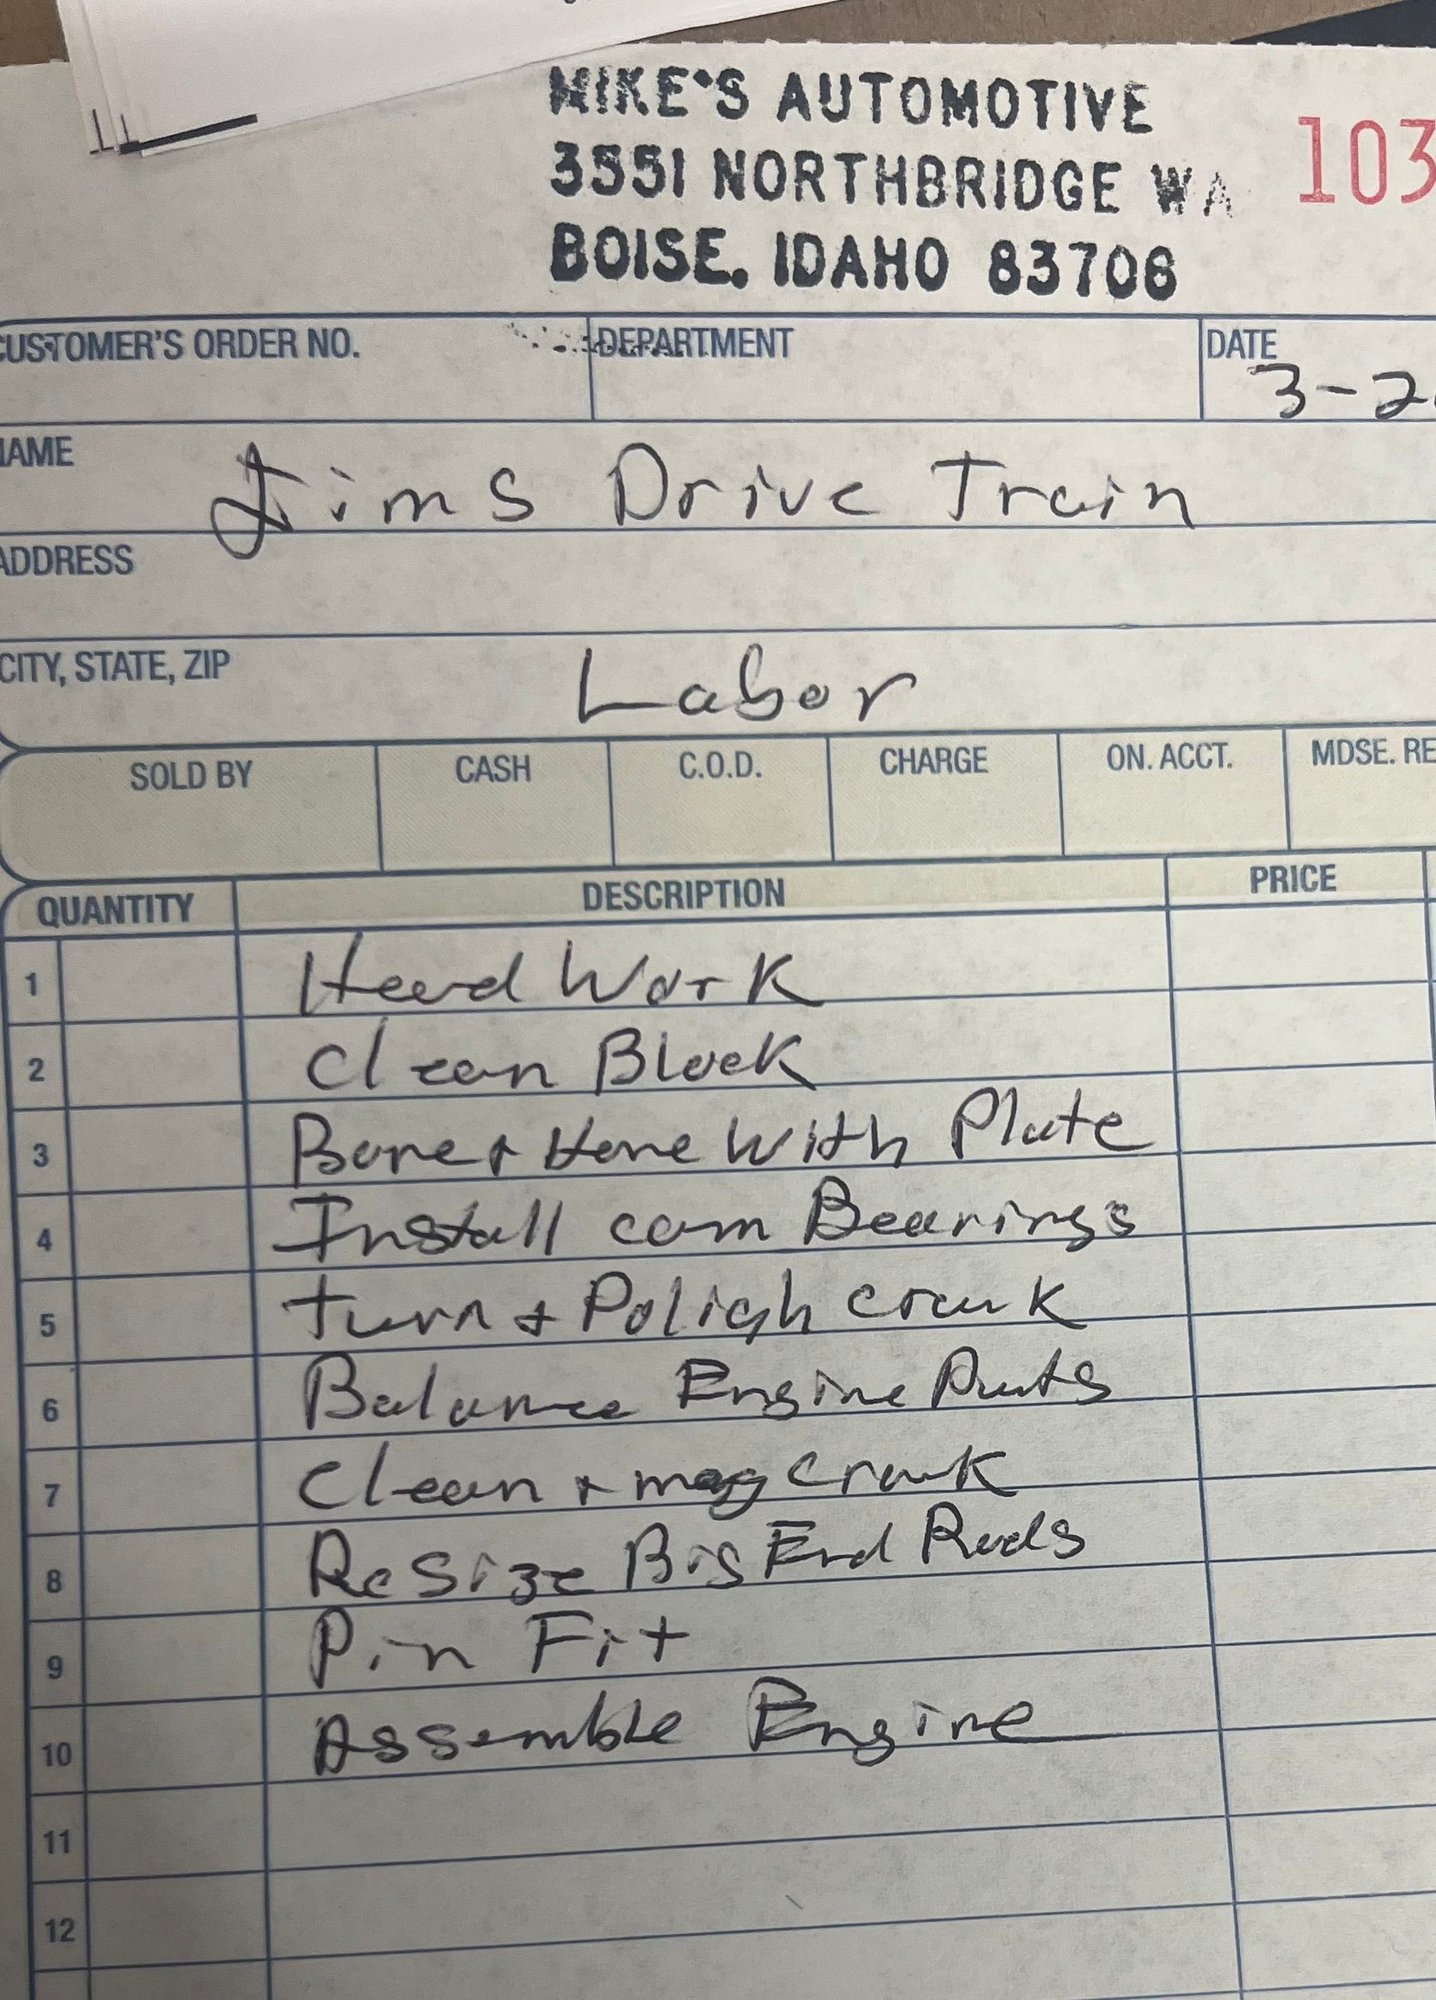 MIKE'S AUTOMOTIVE
3551 NORTHBRIDGE WA
BOISE, IDAHO 83706
103
CUSTOMER'S ORDER NO.
DEPARTMENT
DATE
3-2
NAME
Jims Drive Train
ADDRESS
CITY, STATE, ZIP
Labor
SOLD BY CASH C.O.D. CHARGE ON. ACCT. MDSE. RE
QUANTITY DESCRIPTION PRICE
1 Head Work
2 Clean Block
3 Bore + Hone With Plate
4 Install cam Bearings
5 turn + Polish crank
6 Balance Engine Parts
7 Clean + mag crank
8 ReSize Big End Rods
9 Pin Fit
10 Assemble Engine
11
12